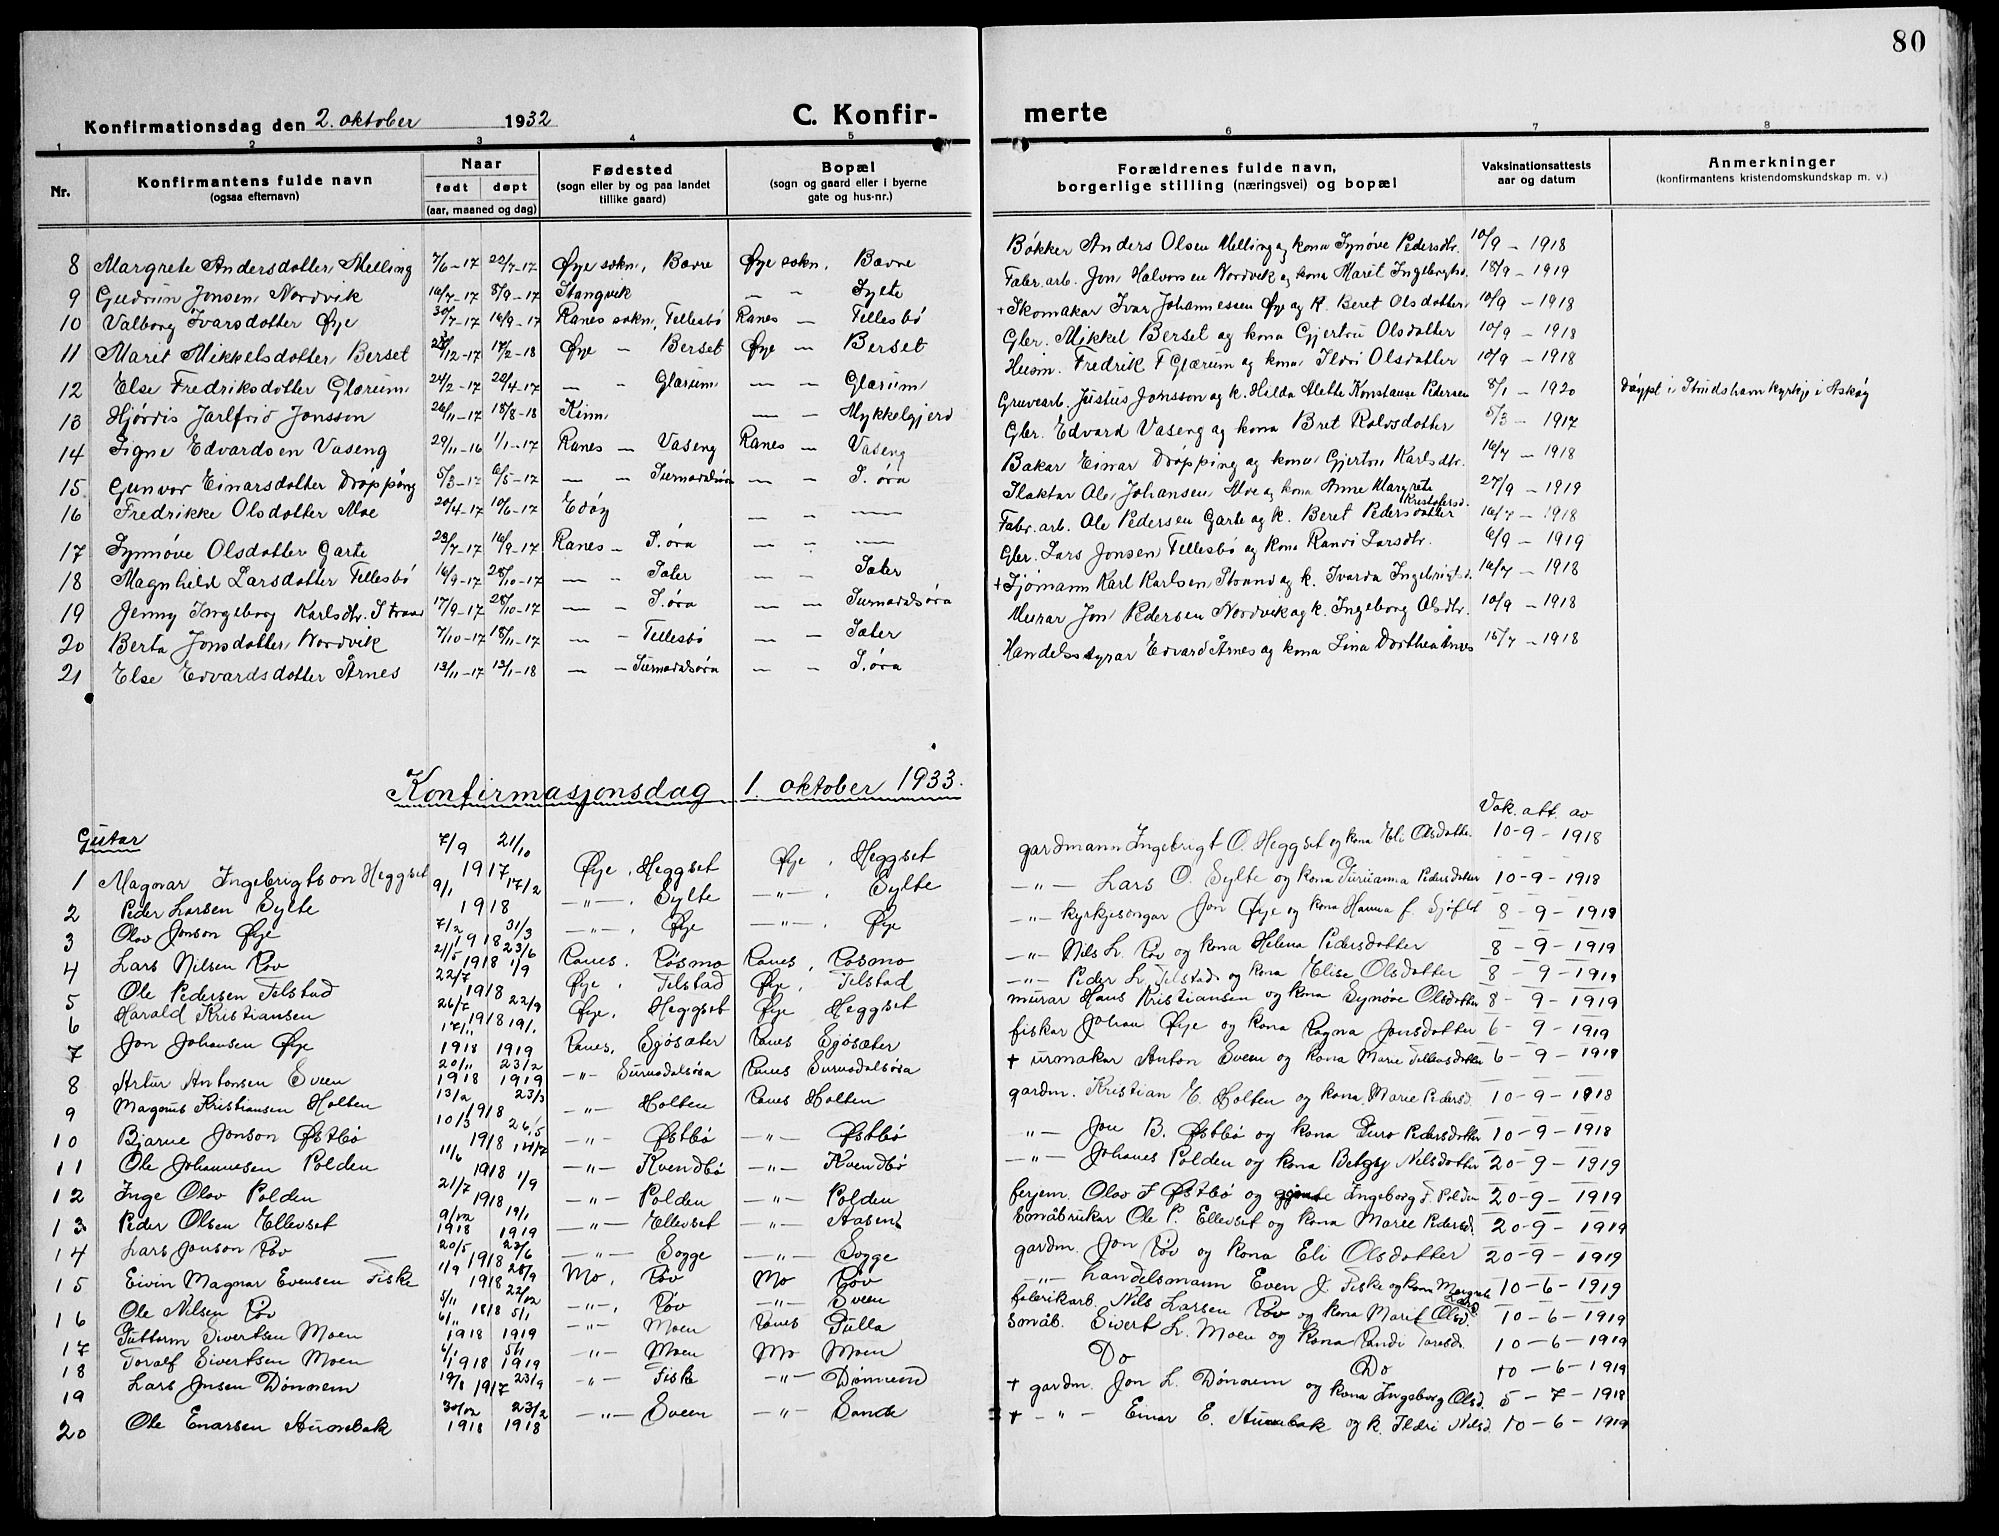 80
Konfirmationsdag den 2. oktober 1932
C. Konfirmerte
1 2 3 4 5 6 7 8
Nr.
Konfirmantens fulde navn
(ogsaa efternavn)
Naar
født døpt
(aar, maaned og dag)
Fødested
(sogn eller by og paa landet
tillike gaard)
Bopæl
(sogn og gaard eller i byerne
gate og hus-nr.)
Forældrenes fulde navn,
borgerlige stilling (næringsvei) og bopæl
Vaksinationsattests
aar og datum
Anmerkninger
(konfirmantens kristendomskundskap m. v.)
8 Margrete Andersdotter Melling 7/6-17 22/7-17 Øye sokn, Bævre Øye sokn, Bævre Bøkker Anders Olsen Melling og kona Synøve Pedersdtr. 10/9 - 1918
9 Gudrun Jonsen Nordvik 16/7-17 8/9-17 Stangvik — — Sylte Fabr. arb. Jon Halvorsen Nordvik og kona Marit Ingebrigtsd. 18/9 - 1919
10 Valborg Ivarsdotter Øye 30/7-17 16/9-17 Ranes sokn, Tellesbø Ranes — Tellesbø + Skomakar Ivar Johannessen Øye og k. Beret Olsdotter 10/9 - 1918
11 Marit Mikkelsdotter Berset 28/12-17 17/2-18 Øye — Berset Øye — Berset Gbr. Mikkel Berset og kona Gjertru Olsdotter 10/9 - 1918
12 Else Fredriksdotter Glærum 24/2-17 22/4-17 — — Glærum — — Glærum Husm. Fredrik T Glærum og kona Ildri Olsdotter 10/9 - 1918
13 Hjørdis Jarlfrid Jonsson 26/11-17 18/8-18 Kinn — — Mykkelgjerd Gruvearb. Justus Jonsson og k. Hilda Alette Konstanse Pedersen 8/1 - 1920 Døypt i Strudshavn kyrkje i Askøy
14 Signe Edvardsen Vaseng 29/11-16 1/1-17 Ranes — Vaseng Ranes — Vaseng Gbr. Edvard Vaseng og kona Bret Rolvsdotter 5/3 - 1917
15 Gunvor Einarsdotter Drøpping 5/3-17 6/5-17 — — Surnadalsøra — — S. øra Bakar Einar Drøpping og kona Gjertru Karlsdtr. 16/7 - 1918
16 Fredrikke Olsdotter Moe 20/4-17 10/6-17 Edøy — — — Slaktar Ola Johansen Moe og kona Anne Margrete Kristofersd. 27/9 - 1919
17 Synnøve Olsdotter Garte 23/7-17 16/9-17 Ranes — S. øra — — — Fabr. arb. Ole Pedersen Garte og k. Beret Pedersdotter 16/7 - 1918
18 Magnhild Larsdotter Tellesbø 16/9-17 28/10-17 — — Sæter — — Sæter Gbr. Lars Jonsen Tellesbø og kona Randi Larsdtr. 6/9 - 1919
19 Jenny Ingeborg Karlsdtr. Strand 17/9-17 28/10-17 — — S. øra — — Surnadalsøra + Sjømann Karl Karlsen Strand og k. Ivarda Ingebrigtsd. 16/7 - 1918
20 Berta Jonsdotter Nordvik 7/10-17 18/11-17 — — Tellesbø — — Sæter Murar Jon Pedersen Nordvik og k. Ingeborg Olsdtr. 10/9 - 1918
21 Else Edvardsdotter Årnes 13/11-17 13/1-18 — — Surnadalsøra — — S. øra Handelsstyrar Edvard Årnes og kona Lina Dorthea Årnes 15/7 - 1918
Konfirmasjonsdag 1. oktober 1933.
Vak. att. av
Gutar
1 Magnar Ingebrigtson Heggset 7/9 21/10 1917 Øye, Heggset Øye, Heggset gardmann Ingebrigt O. Heggset og kona Eli Olsdotter 10-9-1918
2 Peder Larsen Sylte 9/1 17/2 1918 —"—, Sylte —"—, Sylte —"— Lars O. Sylte og kona Guruanna Pedersdotter 10-9-1918
3 Olav Jonson Øye 7/2 31/3 1918 —"—, Øye —"—, Øye —"— kyrkjesongar Jon Øye og kona Hanna f. Sjøflot 8-9-1919
4 Lars Nilsen Røv 21/5 23/6 1918 Ranes, Røsmo Ranes, Røsmo —"— Nils L. Røv og kona Helena Pedersdotter 8-9-1919
5 Ole Pedersen Telstad 22/7 1/9 1918 Øye, Telstad Øye, Telstad —"— Peder L. Telstad og kona Elise Olsdotter 8-9-1919
6 Harald Kristiansen 26/7 22/9 1918 Øye, Heggset Øye Heggset murar Hans Kristiansen og kona Synøve Olsdotter 8-9-1919
7 Jon Johansen Øye 17/11 1918 19/1 1919 Ranes, Sjøsæter Ranes Sjøsæter fiskar Johan Øye og kona Ragna Jonsdotter 6-9-1919
8 Artur Antonsen Sveen 20/11 1918 23/2 1919 —"— Surnadalsøra Ranes Surnadalsøra + urmakar Anton Sveen og kona Marie Tellevsdotter 6-9-1919
9 Magnus Kristiansen Holten 13/2 23/3 1918 —"— Holten Ranes Holten gardm. Kristian E. Holten og kona Marie Pedersd. 10-9-1918
10 Bjarne Jonson Østbø 10/3 26/5 1918 —"— Østbø —"— Østbø —"— Jon B. Østbø og kona Guro Pedersdotter 10-9-1918
11 Ole Johannesen Polden 11/6 14/7 1918 —"— Kvendbø —"— Kvendbø —"— Johanes Polden og kona Betzy Nilsdotter 20-9-1919
12 Inge Olav Polden 21/7 1/9 1918 —"— Polden —"— Polden ferjem. Olav J Østbø og gjente Ingeborg F. Polden 20-9-1919
13 Peder Olsen Ellevset 9/12 1918 19/1 1919 —"— Ellevset —"— Aasen Småbrukar Ole P. Ellevset og kona Marie Pedersd. 20-9-1919
14 Lars Jonson Røv 20/5 23/6 1918 —"— Sogge —"— Sogge gardm. Jon Røv og kona Eli Olsdotter 20-9-1919
15 Eivin Magnar Evensen Fiske 11/9 28/9 1918 Mo, Røv Mo Røv —"— Landelsmann Even J. Fiske og kona Margrete Larsd. 10-6-1919
16 Ole Nilsen Røv 5/11 22/12 1818 —"—, Røv —"— Sveen fabrikarb. Nils Larsen Røv og kona Marit Olsd. 10-6-1919
17 Guttorm Sivertsen Moen 6/11 1918 5/1 1919 —"— Moen Ranes Gulla Småb. Sivert L. Moen og kona Randi Taresdr. 10-6-1919
18 Toralf Sivertsen Moen 6/11 1918 5/1 1919 —"— Moen Mo Moen Do Do 10-6-1919
19 Lars Jnsen Dønnem 19/8 23/9 1917 —"— Fiske —"— Dønnem + gardm. Jon L. Dønnem og kona Ingeborg Olsd. 5-7-1918
20 Ole Enarsen Aunebak 30/12 1918 23/2 1918 —"— Sveen —"— Sande + —"— Einar E. Aunebak og k. Ildri Nilsd. 10-6-1919